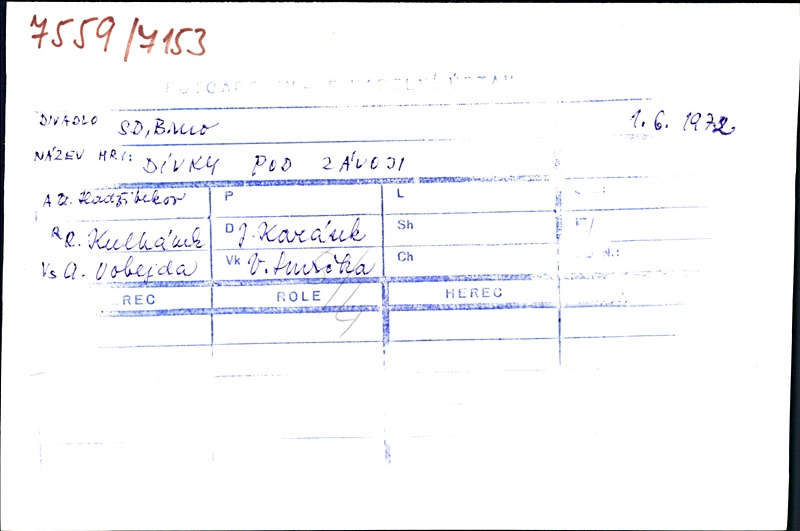 7559/7153
DIVADLO SD, Brno 1. 6. 1972
NÁZEV HRY: DÍVKY POD ZÁVOJI
A U. Hadžibekov P L
R R. Kulhánek D J. Karásek Sh
Vs A. Vobejda Vk V. Ch
REC ROLE HEREC